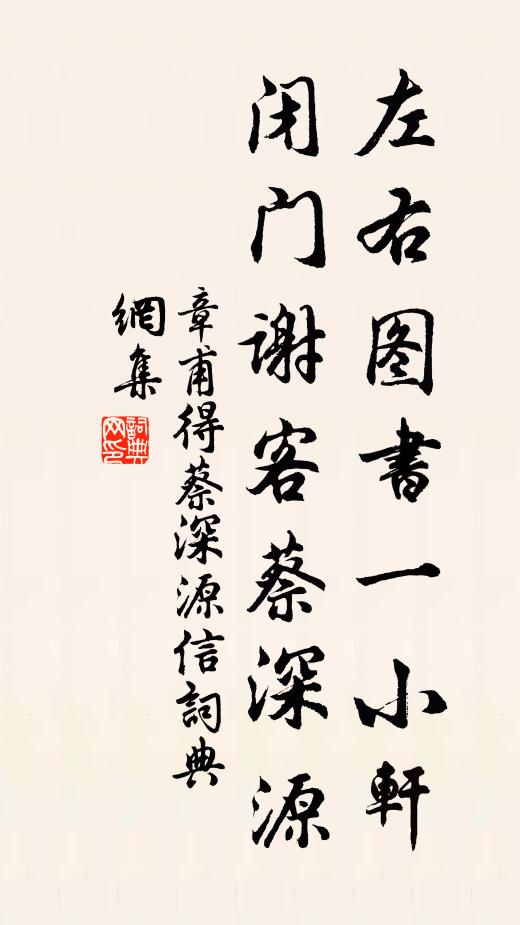 左右图書一小軒
闭门謝客蔡深源
章甫得蔡深源信詞典
網集
詞典
网印